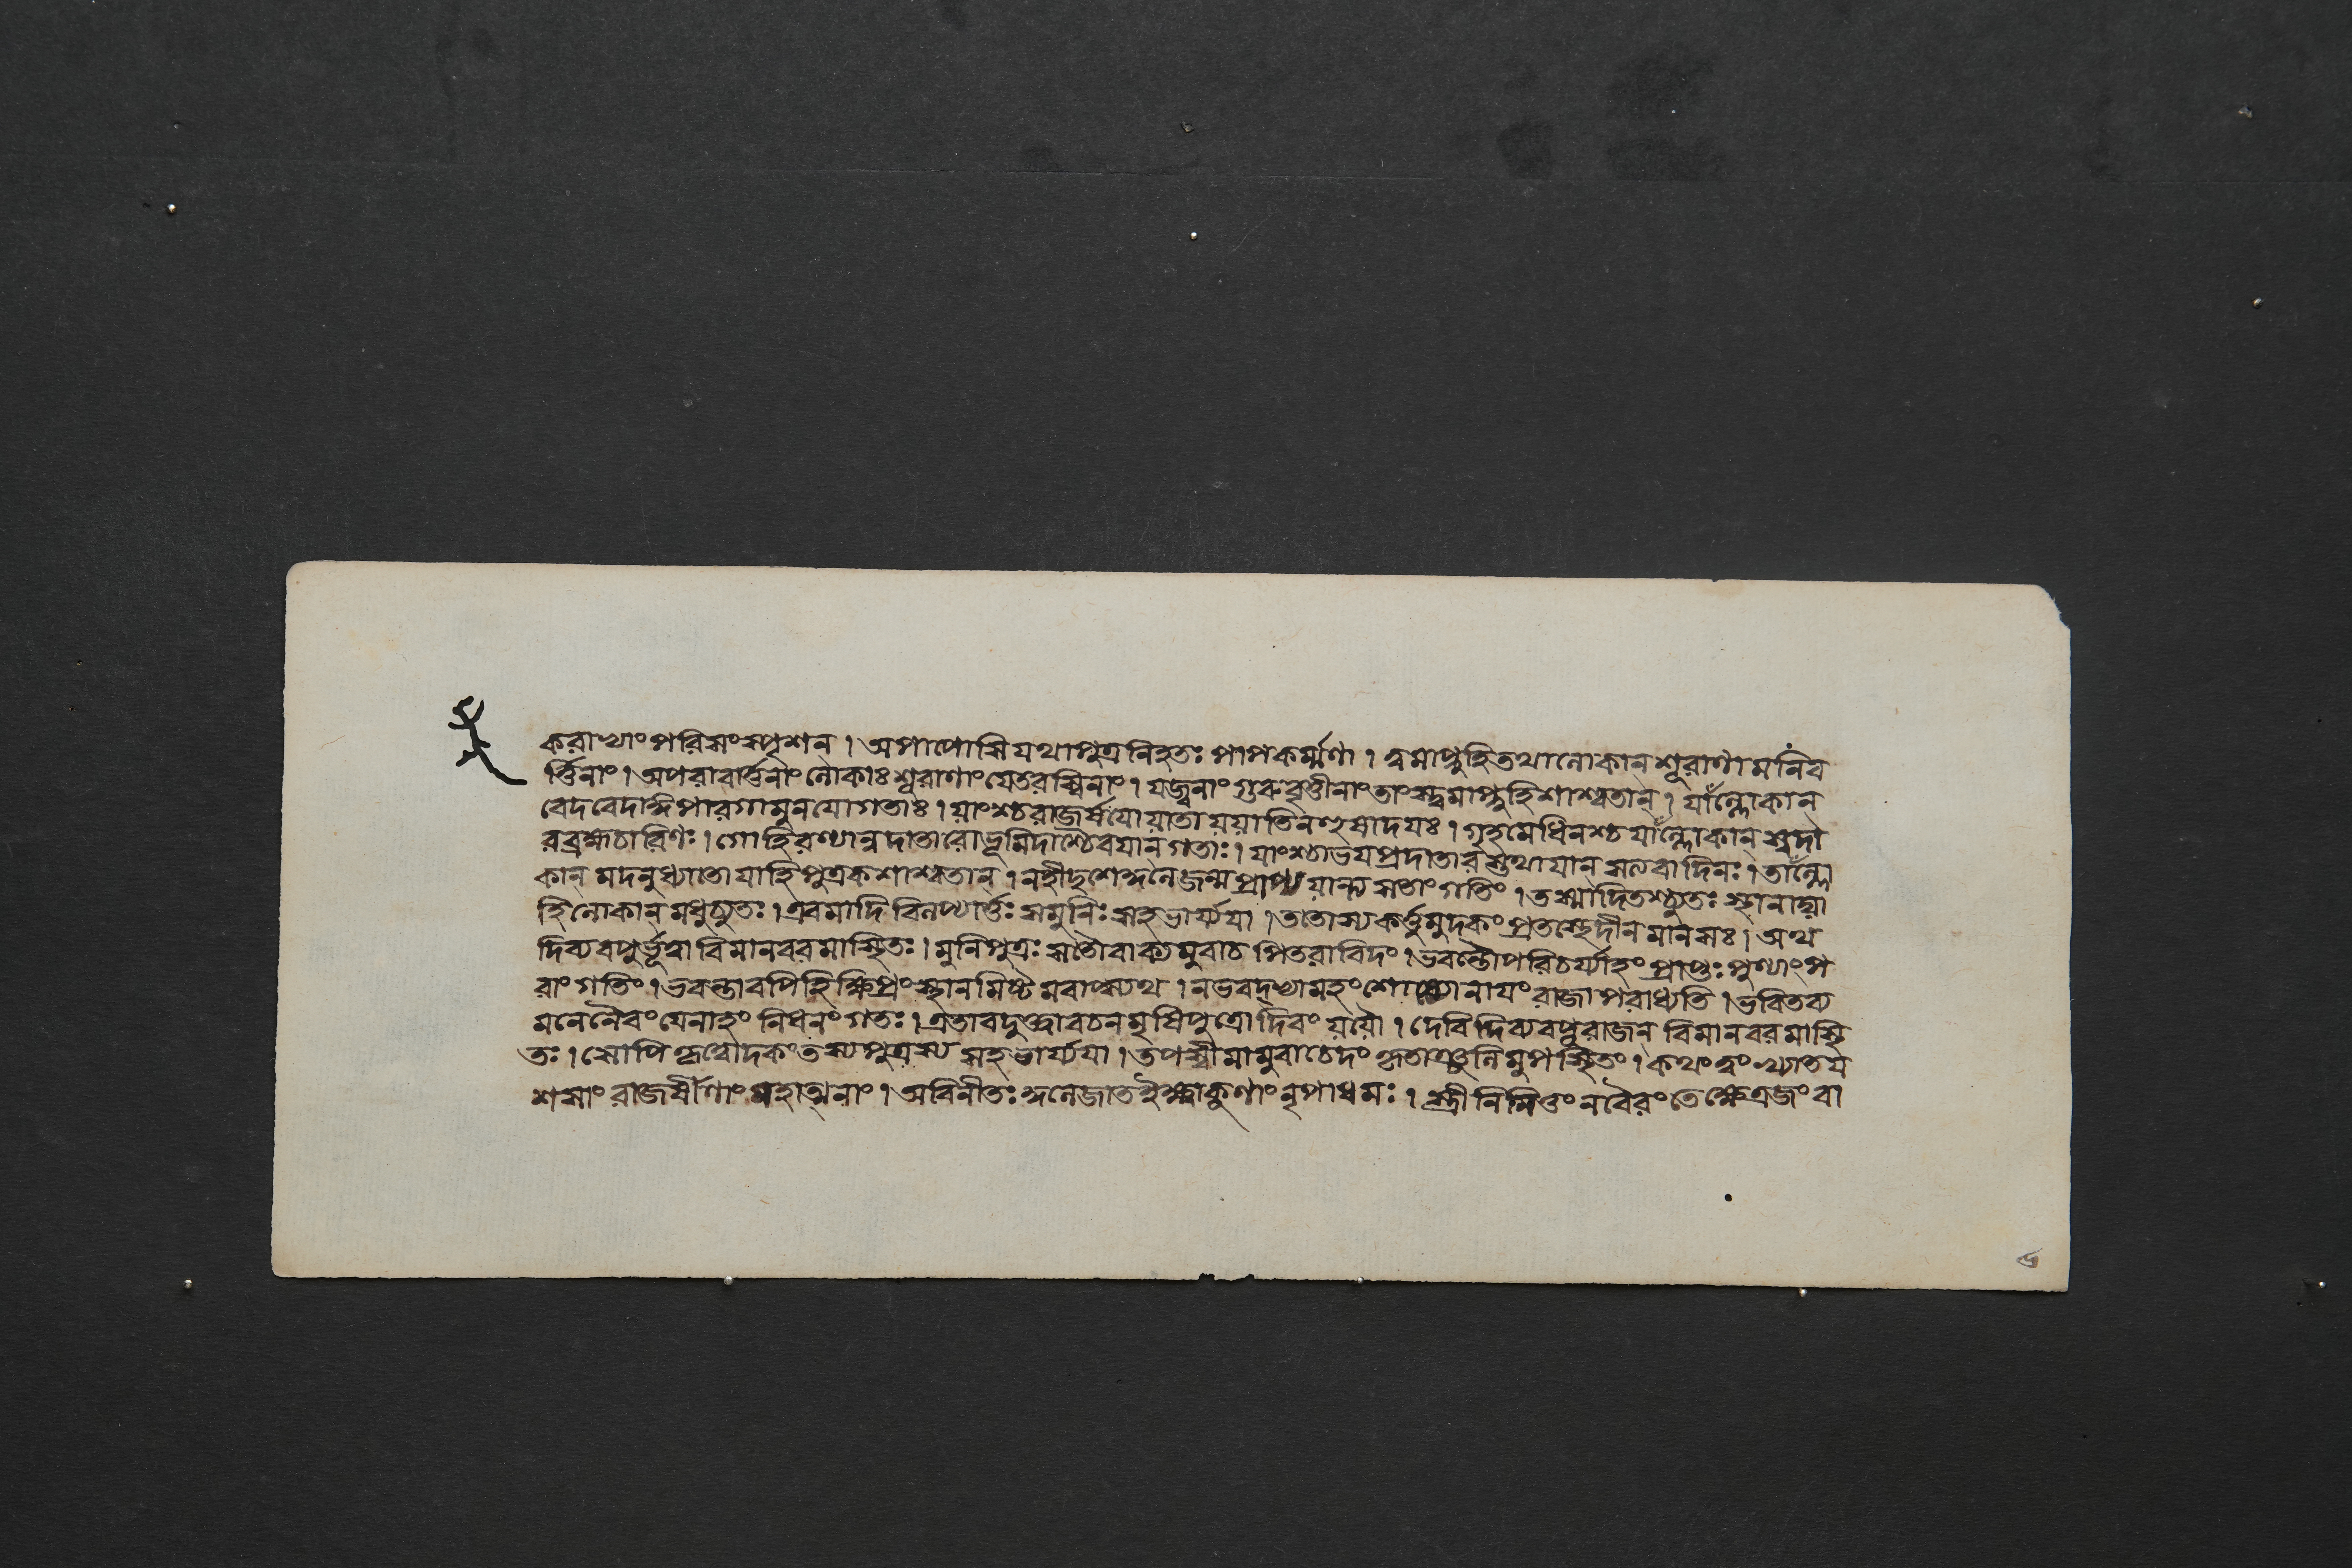 করাভ্যাং পরিসংস্পৃশন্ । অপাপোসি যথা পুত্র নিহতঃ পাপকর্ম্মণা । ত্বমাপ্নুহি তথা লোকান্ শূরাণামনিব
র্ত্তিনাং । অপরাবর্ত্তিনাং লোকাঃ শূরাণাং যে তরস্বিনাং । যজ্বনাং গুরুবৃত্তীনাং তাংস্ত্বমাপ্নুহি শাশ্বতান্ । যাঁল্লোকান্
বেদবেদাঙ্গপারগা মুনযো গতাঃ । যাংশ্চ রাজর্ষযো যাতা যযাতিনহুষাদযঃ । গৃহমেধিনশ্চ যাঁল্লোকান্ স্বদা
রব্রহ্মচারিণঃ । গোহিরণ্যান্নদাতারো ভূমিদাশ্চৈব যান্ গতাঃ । যাংশ্চাভযপ্রদাতারস্তথা যান্ সত্যবাদিনঃ । তাঁল্লো
কান্ মদনুধ্যাতো যাহি পুত্রক শাশ্বতান্ । নহীদৃশে কুলে জন্ম প্রাপ্য যান্ত্যসতাং গতিং । তস্মাদিতশ্চ্যুতঃ স্থানাদ্যা
হি লোকান্ মধুচ্যুতঃ । এবমাদি বিলপ্যার্ত্তঃ স মুনিঃ সহ ভার্য্যযা । ততোস্য কর্ত্তুমুদকং প্রতস্থে দীনমানসঃ । অথ
দিব্যবপুর্ভূত্বা বিমানবরমাস্থিতঃ । মুনিপুত্রঃ স তৌ বাক্যমুবাচ পিতরাবিদং । ভবন্তৌ পরিচর্য্যাহং প্রাপ্তঃ পুণ্যাং প
রাং গতিং । ভবন্তাবপি হি ক্ষিপ্রং স্থানমিষ্টমবাপ্স্যথ । ন ভবদ্ভ্যামহং শোচ্যো নাযং রাজাপরাধ্যতি । ভবিতব্য
মনেনৈবং যেনাহং নিধনং গতঃ । এতাবদুক্ত্বা বচনমৃষিপুত্রো দিবং যযৌ । দেবি দিব্যবপুরাজন্ বিমানবরমাস্থি
তঃ । সোপি কৃত্বোদকং তস্য পুত্রস্য সহ ভার্য্যযা । তপস্বী মামুবাচেদং কৃতাঞ্জলিমুপস্থিতং । কথং ত্বং খ্যাতয
শসাং রাজর্ষীণাং মহাত্মনাং । অবিনীতঃ কুলে জাত ইক্ষ্বাকুণাং নৃপাধমঃ । স্ত্রীনিমিত্তং ন বৈরং তে ক্ষেত্রজং বা